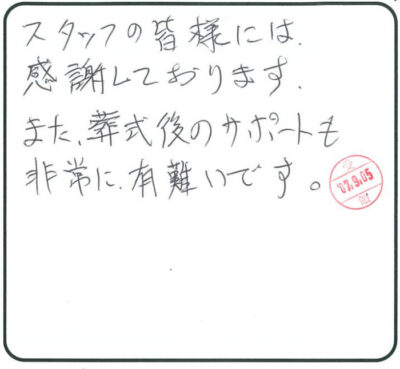 スタッフの皆様には、
感謝しております。
また、葬式後のサポートも
非常に、有難いです。
17.9.05